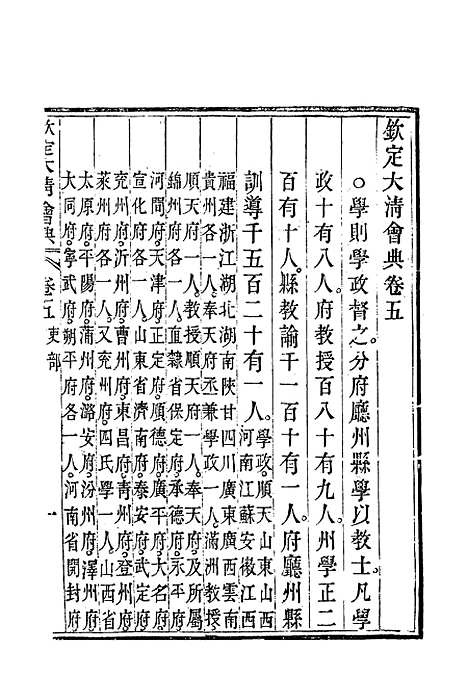 欽定大清會典卷五
○學則學政督之分府廳州縣學以教士凡學
政十有八人府教授百八十有九人州學正二
百有十人縣教諭千一百十有一人府廳州縣
訓導千五百二十有一人學政順天山東山西
河南江蘇安徽江西
福建浙江湖北湖南陝甘四川廣東廣西雲南
貴州各一人奉天府丞兼學政一人滿洲教授
順天府一人教授順天府一人奉天府及所屬
錦州府各一人直隸省保定府承德府永平府
河間府天津府正定府順德府廣平府大名府
宣化府各一人山東省濟南府泰安府武定府
兗州府沂州府曹州府東昌府青州府登州府
萊州府各一人又兗州府四氏學一人山西省
太原府平陽府蒲州府潞安府汾州府澤州府
大同府寧武府朔平府各一人河南省開封府
欽定大清會典 卷五 吏部 一